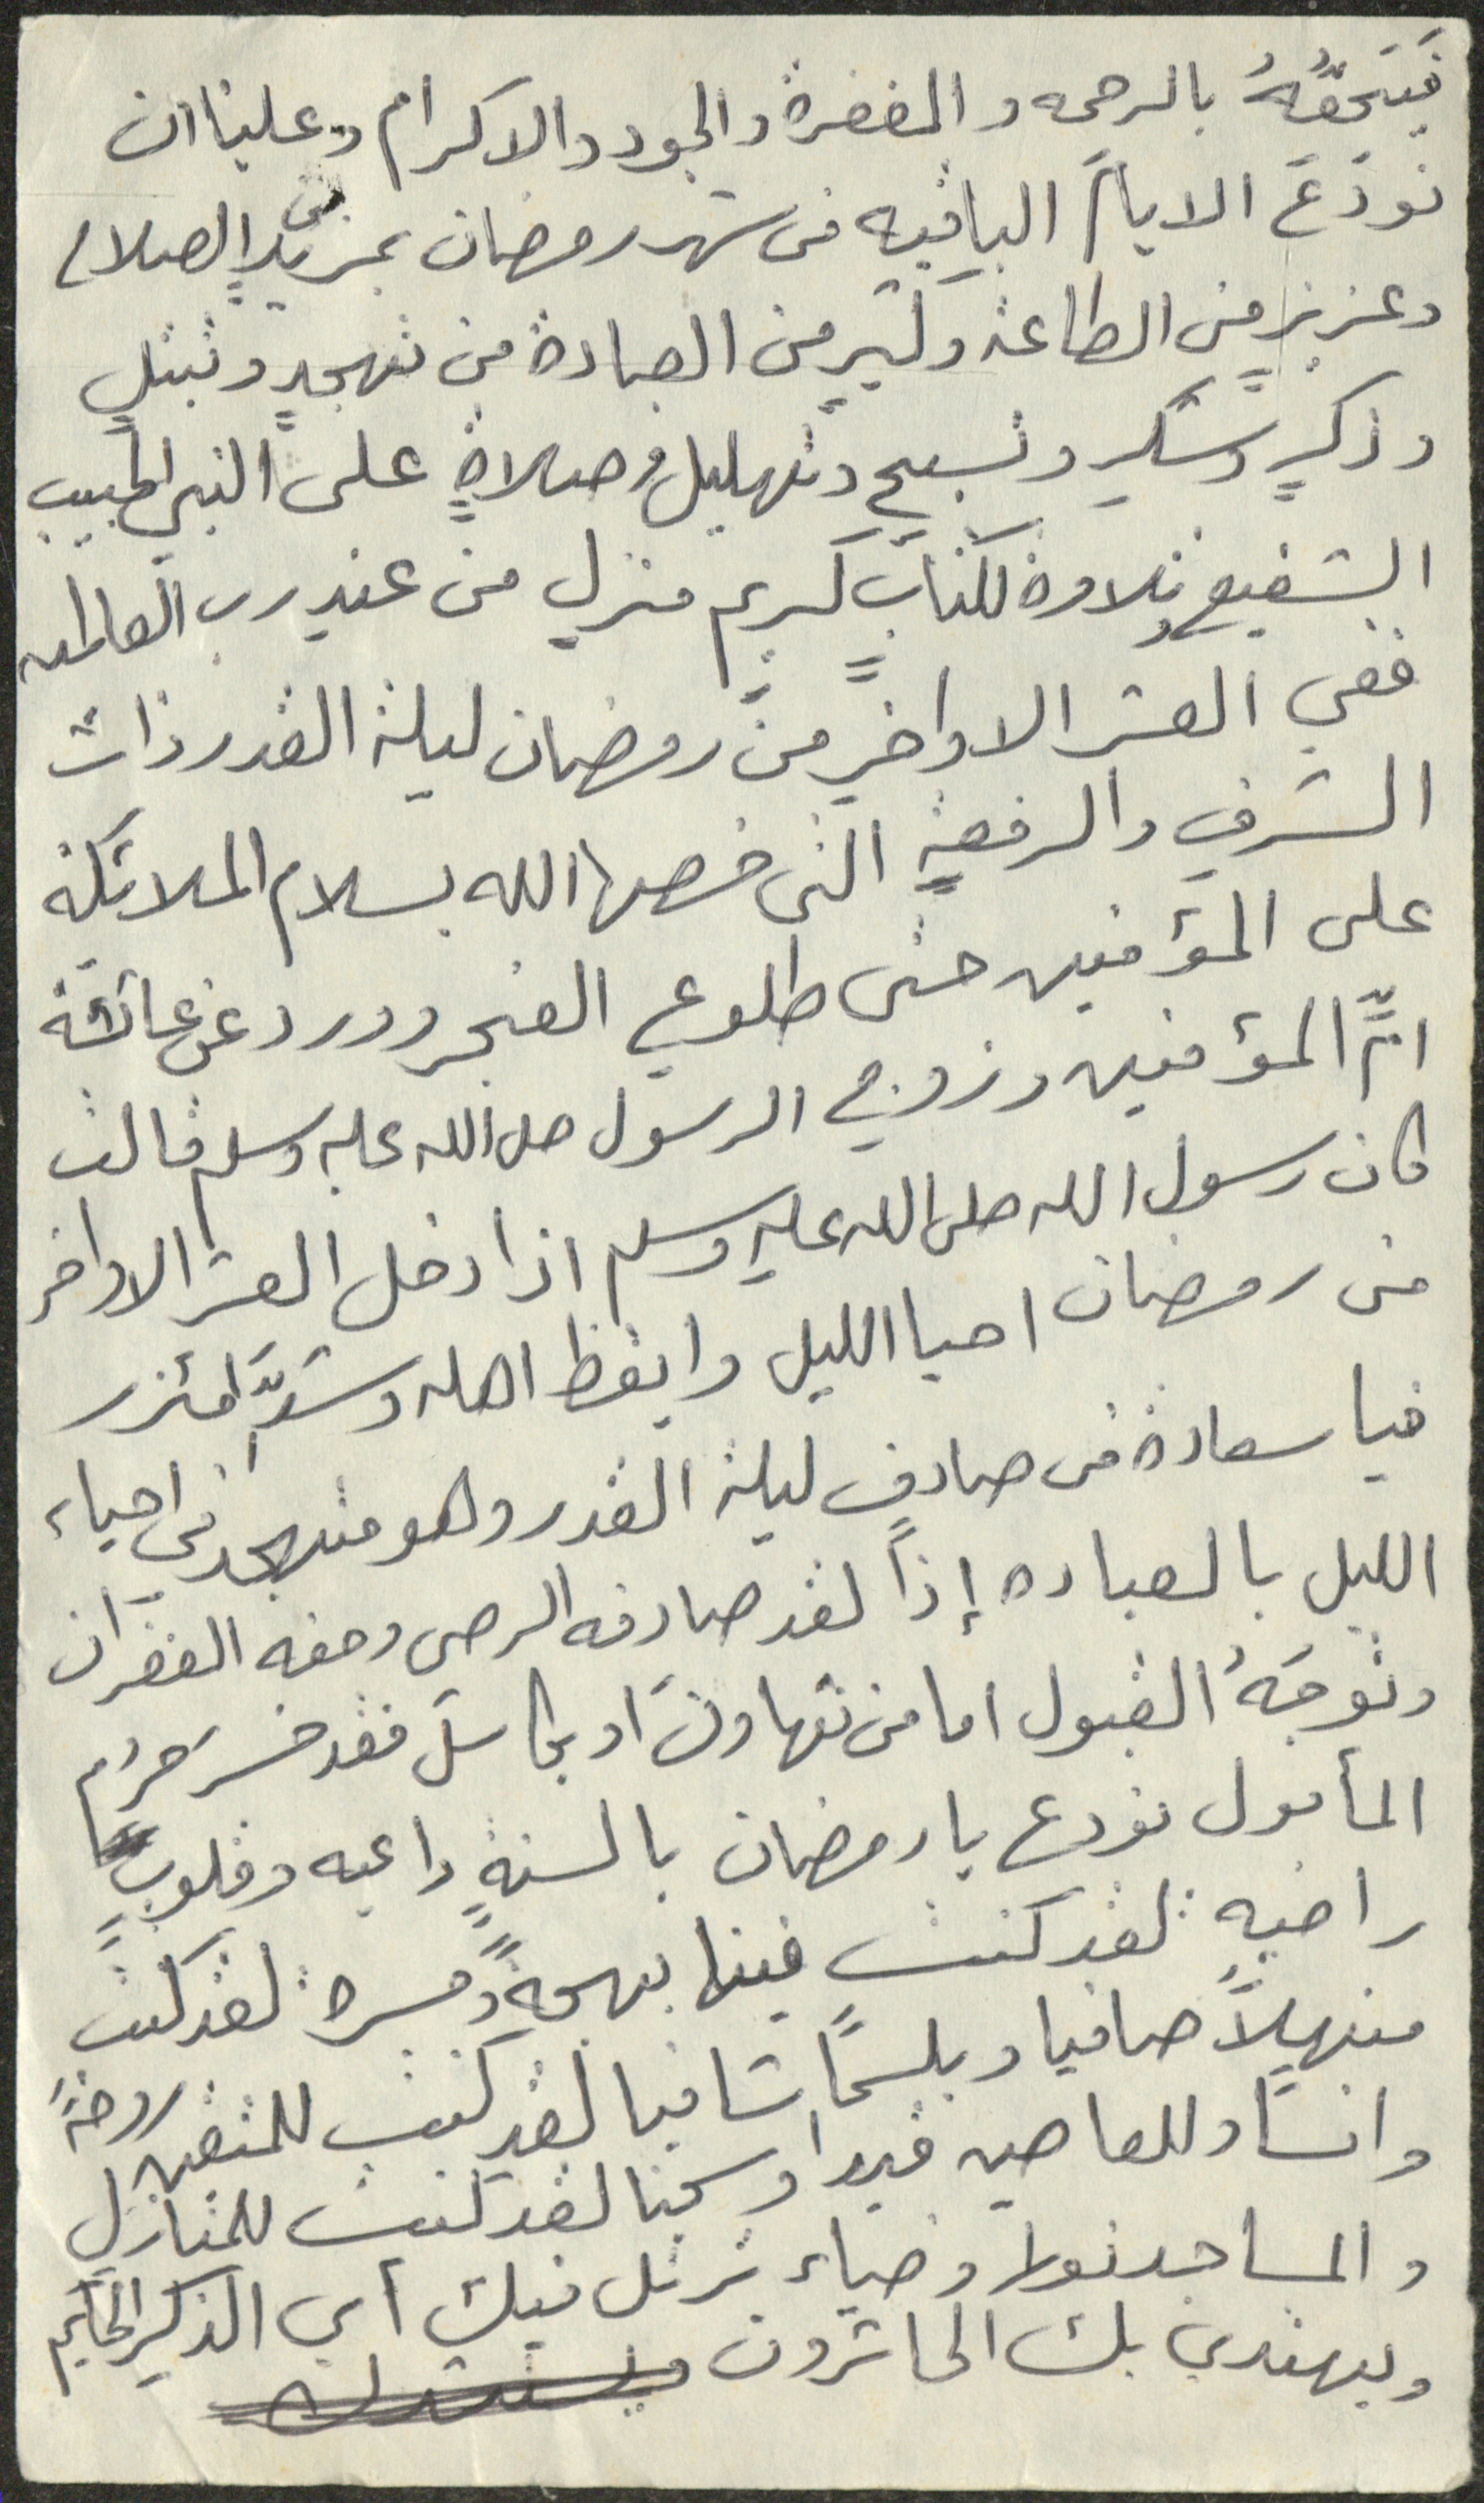 فَيَتَحِفُّهُ بالرحمه والمغفرة والجود والاكرام وعلينا ان
نودَعَ الايامَ الباقيه من شهر رمضان بمزيدٍ من الصلاة
وعزيزٍ من الطاعة وكثيرٍ من العبادة من تهجدٍ وتبتلٍ
وذكرٍ وشكرٍ وتسبيحٍ وتهليلٍ وصلاةٍ على النبي الحبيب
الشفيع وتلاوة لكتابٍ كريمٍ منزلٍ من عندِ رب العالمين
ففي العشر الاواخرِ من رمضان ليلة القدر ذات
الشرفِ والرفعةِ التى خصها الله بسلام الملائكة
على المؤمنين حتى طلوعِ الفجر وورد عن عائشة
امِّ المؤمنين وزوجِ الرسول صلى الله عليه وسلم قالت
كان رسول الله صلى الله عليه وسلم اذا دخل العشر الاواخر
من رمضان احيا الليل وايقظ اهله وشدَّ المئزر
فيا سعادة من صادف ليلة القدر وهو متهجد في احياء
الليل بالعباده إذاً لقد صادفه الرضى وحفه الغفران
وتوجَهُ القبول اما من تهاونَ او تكاسلَ فقد خسر حُرم
المأمول نودع يا رمضان بالسنةٍ داعيه وقلوبٍ
راضيهٍ لقد كنت فينا بهجةً ومسرة لقد كنت
منهلاً صافيا وبلسمًا شافيا لقد كنت للمتقين روضةً
وانسًا وللعاصين قيدا وسجنا لقد كنت للمنازلِ
والمساجد نورا وضياء ترتل فيك آي الذكر الحكيم
ويهتدي بك الحائرون